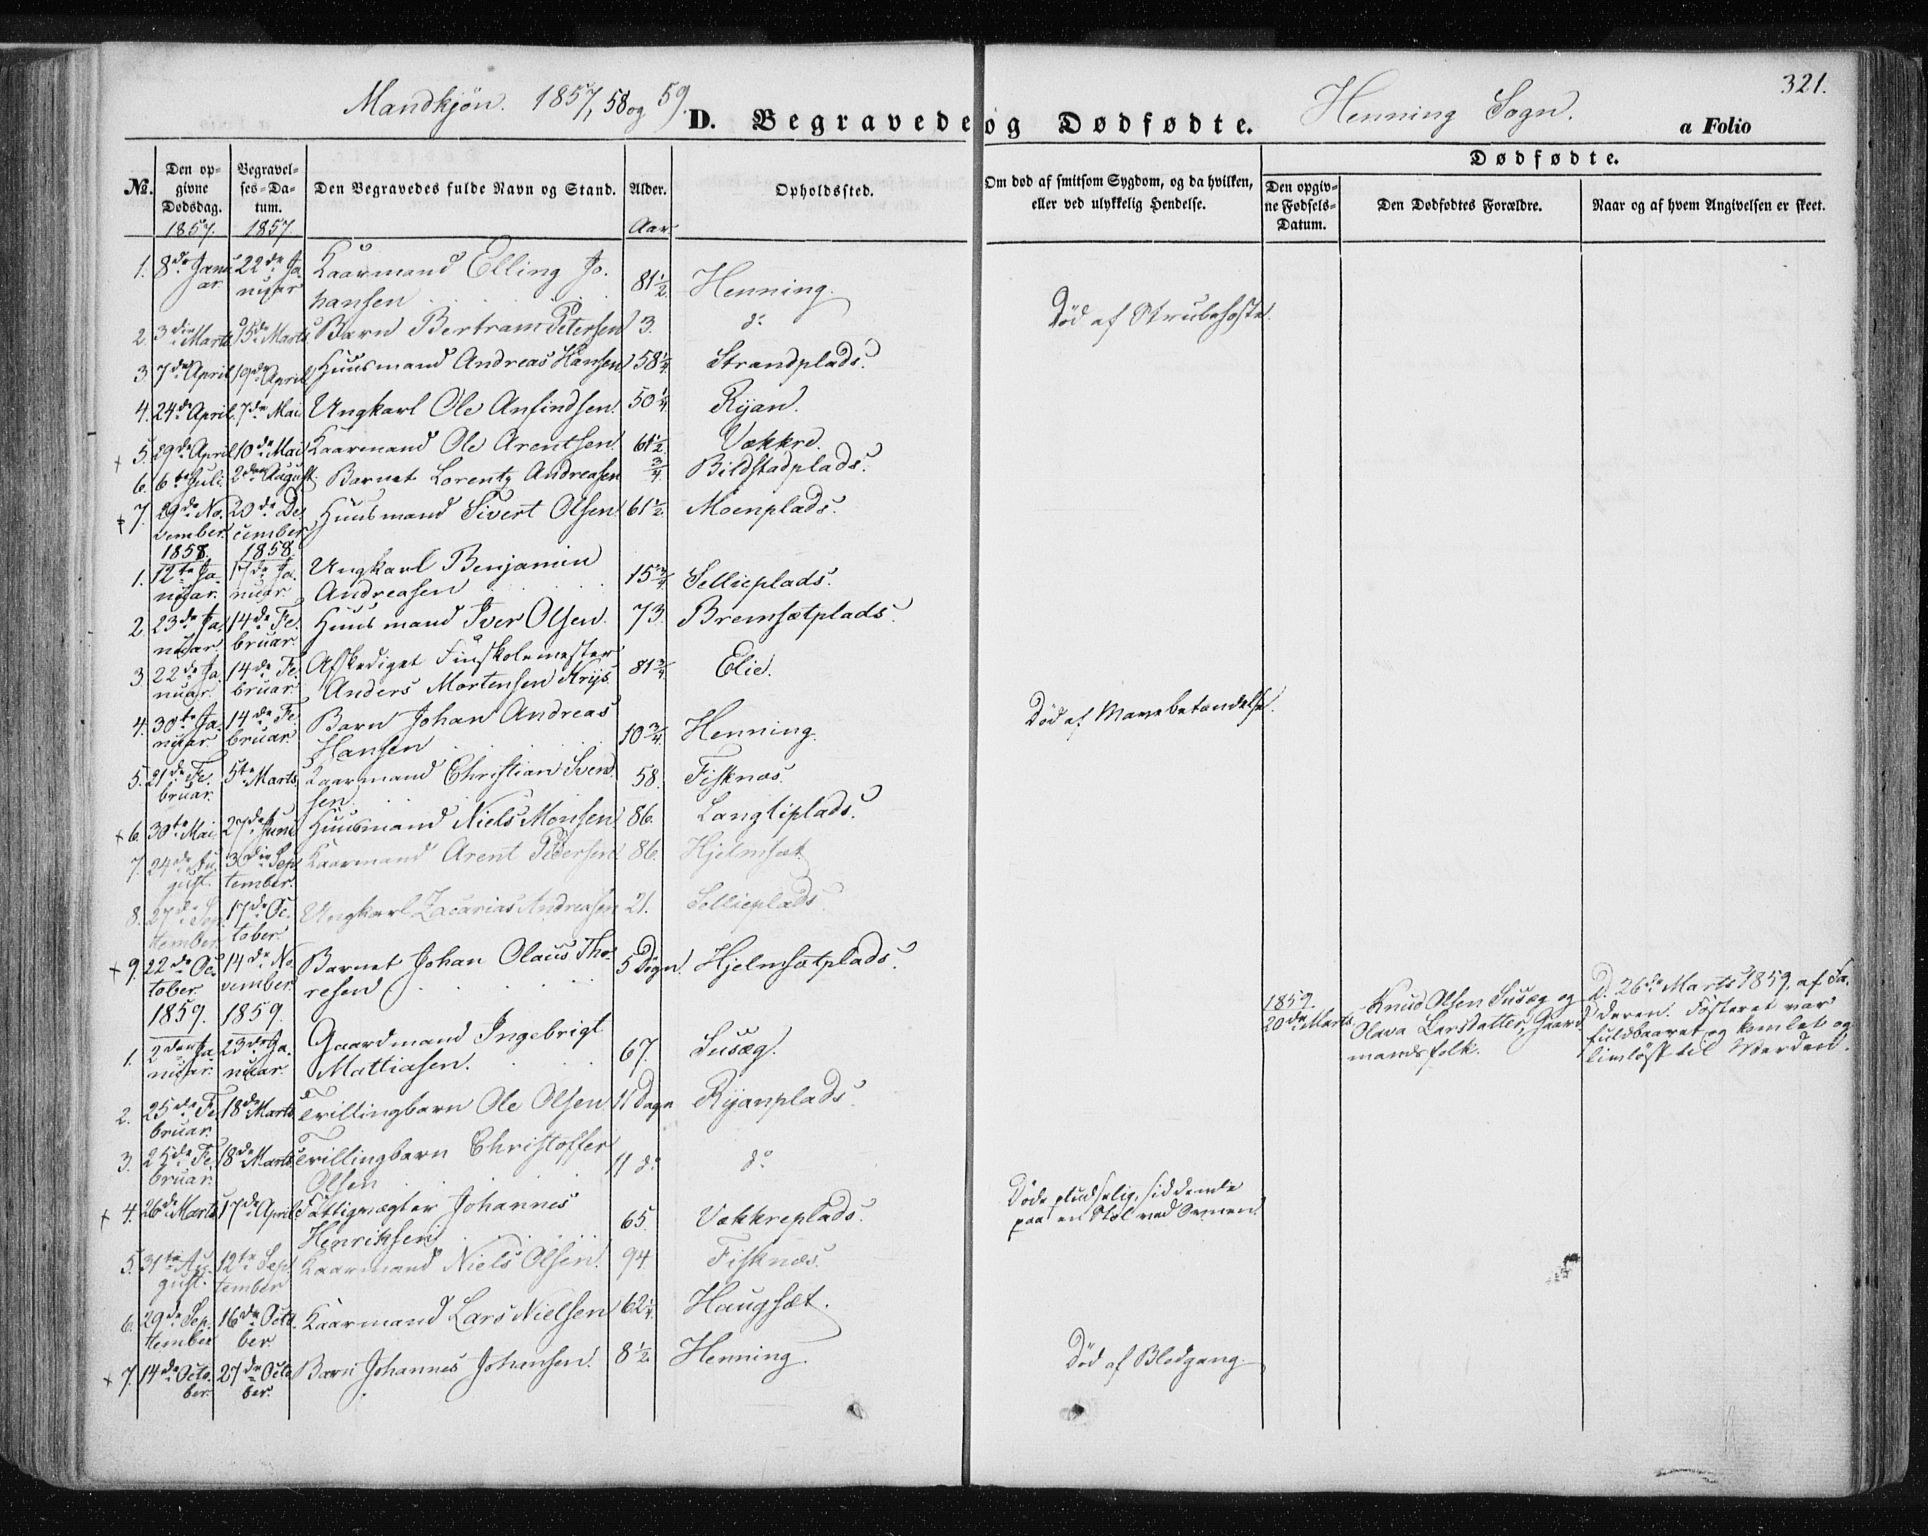 Mandkjön. 1857, 58 og 59.
D. Begravede og Dødfødte.
Henning Sogn.
321.
a Folio
No.
Den opgivne Dødsdag.
Begravelses-Datum.
Den Begravedes fulde Navn og Stand.
Alder.
Opholdssted.
Om død af smitsom Sygdom, og da hvilken, eller ved ulykkelig Hendelse.
Dødfødte.
Den opgivne Fødsels-Datum.
Den Dødfødtes Forældre.
Naar og af hvem Angivelsen er skeet.
1857. 1857 Aar
1. 8de Januar 22de Januar Kaarmand Elling Johansen 81½ Henning.
2. 3die Marts 15de Marts Barn Bertram Petersen 3. do Død af Strubehoste.
3. 7de April 19de April Huusmand Andreas Hansen 58¼ Strandplads.
4. 24de April 7de Mai Ungkarl Ole Anfindsen. 50¼ Ryan.
+ 5. 29de April 10de Mai Kaarmand Ole Arentsen. 61½ Vækkre.
6. 6te Juli. 2den August. Barnet Lorentz Andreasen ¾ Bildstadplads.
+ 7. 29de November. 20de December Huusmand Sivert Olsen 61½ Moenplads.
1858. 1858.
1. 12te Januar. 17de Januar Ungkarl Benjamin Andreasen 15¾ Sellieplads.
2. 23de Januar. 14de Februar. Huusmand Iver Olsen. 73. Bremsætplads.
3. 22de Januar. 14de Februar. Afskediget Finskolemester Anders Mortensen Krys. 81¾ Elie.
4. 30te Januar. 14de Februar. Barn Johan Andreas Hansen 10¾ Henning. Død af Mavebetændelse.
5. 21de Februar. 5te Marts. Kaarmand Christian Svendsen. 58. Fisknæs.
+ 6. 30te Mai 27de Juni Huusmand Niels Monsen. 86. Langliplads.
7. 24de August. 3die September. Kaarmand Arent Pedersen. 86. Hjelmsæt
8. 27de September 17de October. Ungkarl Zacarias Andreasen 21. Sellieplads
+ 9. 22de October. 14de November. Barnet Johan Olaus Thoresen 5 Døgn. Hjelmsætplads.
1859. 1859.
1. 2den Januar. 23de Januar. Gaardmand Ingebrigt Mattiasen. 67. Susæg.
1859. 20de Marts Knud Olsen Susæg og Olava Larsdatter, Gaardmandsfolk. D. 26de Marts 1859 af Faderen. Fosteret var fuldbaaret og kom livløst til Verden.
2. 25de Februar. 18de Marts Trillingbarn Ole Olsen 11 Døgn Ryanplads.
3. 25de Februar. 18de Marts Trillingbarn Christoffer Olsen 11 do do
+ 4. 26de Marts 17de April Fattiglægter Johannes Henriksen 65. Vækkreplads. Døde pludselig, siddende paa en Stol ved Ovnen.
5. 31te August. 12te September Kaarmand Niels Olsen. 94. Fisknæs.
6. 29de September 16de October. Kaarmand Lars Nielsen 62¼ Haugsæt.
+ 7. 14de October. 27de October. Barn Johannes Johansen. 8½ Henning. Død af Blodgang.